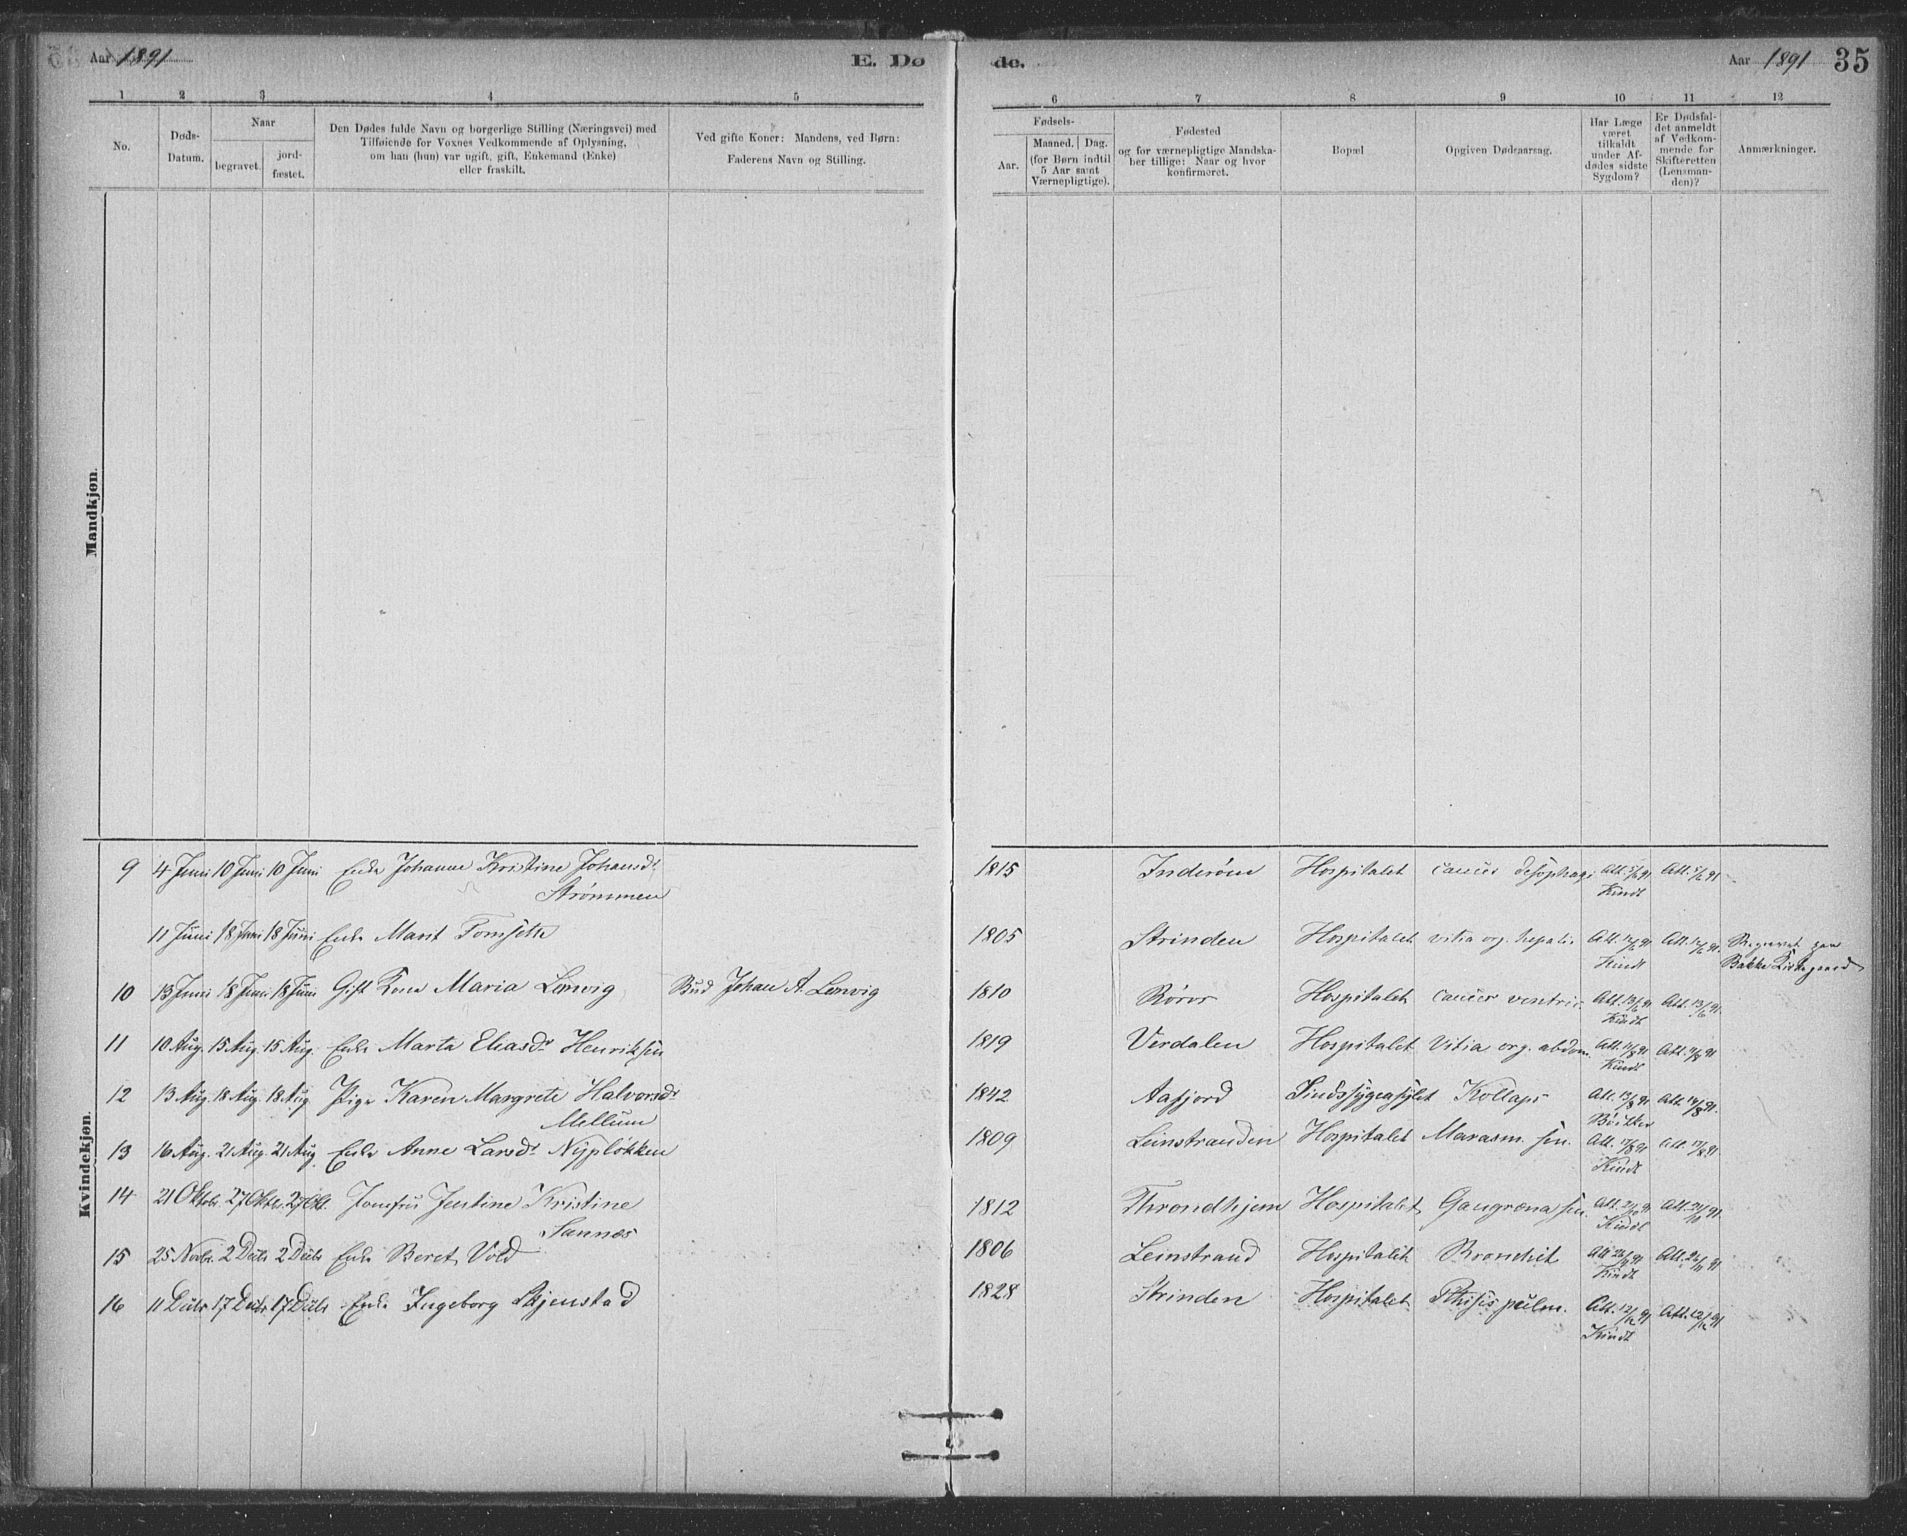 Aar 1891
E. Dø
de.
Aar 1891
35
1 2 3 4 5
6 7 8 9 10 11 12
No.
Døds-
Datum.
Naar
begravet.
jord-
fæstet.
Den Dødes fulde Navn og borgerlige Stilling (Næringsvei) med
Tilføiende for Voxnes Vedkommende af Oplysning,
om han (hun) var ugift, gift, Enkemand (Enke)
eller fraskilt.
Ved gifte Koner: Mandens, ved Børn:
Faderens Navn og Stilling.
Fødsels-
Aar.
Maaned. Dag.
(for Børn indtil
5 Aar samt
Værnepligtige).
Fødested
og for værnepligtige Mandska-
ber tillige: Naar og hvor
konfirmeret.
Bopæl
Opgiven Dødsaarsag.
Har Læge
været
tilkaldt
under Af-
dødes sidste
Sygdom?
Er Dødsfal-
det anmeldt
af Vedkom-
mende for
Skifteretten
(Lensman-
den)?
Anmærkninger.
Mandkjøn.
Kvindekjøn.
9 4 Juni 10 Juni 10 Juni Enke Johanne Kristine Johansdr 1815 Inderøen Hospitalet cancer Att. 5/6 91 Att. 5/6 91
Strømmen Kindt
11 Juni 18 Juni 18 Juni Enke Marit Tomseth 1805 Strinden Hospitalet vitia org. hepatis Att. 12/6 91 Att. 12/6 91. Begravet paa
Kindt Bakke Kirkegaard
10 13 Juni 18 Juni 18 Juni Gift Kone Maria Lenvig Bud Johan A. Lenvig 1810 Røros Hospitalet cancer ventric. Att. 13/6 91 Att. 13/6 91.
Kindt
11 10 Aug. 15 Aug. 15 Aug. Enke Marta Eliasdr Henriksen 1819 Verdalen Hospitalet Vitia org. abdom. Att. 11/8 91 Att. 11/8 91
Kindt
12 13 Aug. 18 Aug 18 Aug Pige Karen Margrete Halvorsdr 1842 Aafjord Sindssygeasylet Kollaps Att. 13/8 91 Att. 14/8 91.
Mellum
13 16 Aug. 21 Aug. 21 Aug. Enke Anne Larsdr Nypløkken 1809 Leinstranden Hospitalet Marasm. sen. Att. 17/8 91 Att. 17/8 91.
Kindt
14 21 Oktobr. 27 Oktbr. 27 Okt. Jomfru Jentine Kristine 1812 Throndhjem Hospitalet Gangræna sen. Att. 21/10 91 Att. 21/10 91.
Sannes Kindt
15 25 Novbr. 2 Decbr 2 Decbr Enke Beret Vold 1806 Leinstrand Hospitalet Bronchit Att. 26/11 91 Att. 26/11 91
Kindt
16 11 Decbr 17 Decbr 17 Decbr Enke Ingeborg Skjenstad 1828 Strinden Hospitalet Pthisis pulm. Att. 12/12 91 Att. 12/12 91
Kindt